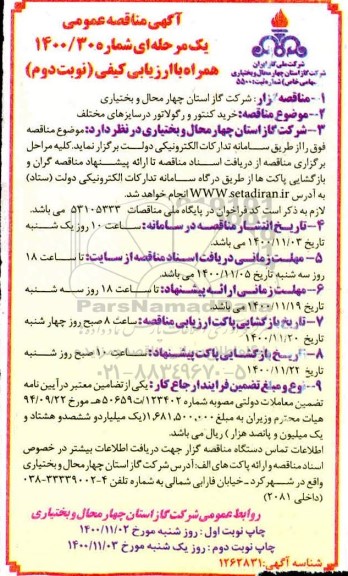 آگهی مناقصه عمومی
یک مرحله‌ای شماره ۱۴۰۰/۳۰
همراه با ارزیابی کیفی (نوبت دوم)
شرکت ملی گاز ایران
شرکت گاز استان چهار محال و بختیاری
سهامی خاص) شماره ثبت: ۵۵۰۰
۱- مناقصه گزار: شرکت گاز استان چهار محال و بختیاری
۲- موضوع مناقصه: خرید کنتور و رگولاتور در سایزهای مختلف
۳- شرکت گاز استان چهار محال و بختیاری در نظر دارد: موضوع مناقصه
فوق را از طریق سامانه تدارکات الکترونیکی دولت برگزار نماید. کلیه مراحل
برگزاری مناقصه از دریافت اسناد مناقصه تا ارائه پیشنهاد مناقصه گران و
بازگشایی پاکت ها از طریق درگاه سامانه تدارکات الکترونیکی دولت (ستاد)
به آدرس WWW.setadiran.ir انجام خواهد شد.
لازم به ذکر است کد فراخوان در پایگاه ملی مناقصات ۵۳۱۰۵۳۳۳ می باشد.
۴- تاریخ انتشار مناقصه در سامانه: ساعت ۱۰ روز یک شنبه
تاریخ ۱۴۰۰/۱۱/۰۳ می باشد.
۵- مهلت زمانی دریافت اسناد مناقصه از سایت: تا ساعت ۱۸
روز سه شنبه تاریخ ۱۴۰۰/۱۱/۰۵ می باشد.
۶- مهلت زمانی ارائه پیشنهاد: تا ساعت ۱۸ روز سه شنبه
تاریخ ۱۴۰۰/۱۱/۱۹ می باشد.
۷- تاریخ بازگشایی پاکت ارزیابی مناقصه: ساعت ۸ صبح روز چهار شنبه
تاریخ ۱۴۰۰/۱۱/۲۰
۸- تاریخ بازگشایی پاکت پیشنهاد: ساعت ۱۰ صبح روز شنبه
تاریخ ۱۴۰۰/۱۱/۲۲
۹- نوع و مبلغ تضمین فرایند ارجاع کار: یکی از تضامین معتبر در آیین نامه
تضمین معاملات دولتی مصوبه شماره ۱۲۳۴۰۲/ت۵۰۶۵۹هـ مورخ ۹۴/۰۹/۲۲
هیات محترم وزیران به مبلغ ۱,۶۸۱,۵۰۰,۰۰۰ (یک میلیارد و ششصد و هشتاد و
یک میلیون و پانصد هزار) ریال می باشد.
اطلاعات تماس دستگاه مناقصه گزار جهت دریافت اطلاعات بیشتر در خصوص
اسناد مناقصه و ارائه پاکت های الف: آدرس شرکت گاز استان چهار محال و بختیاری
واقع در شهرکرد - خیابان فارابی شمالی به شماره تلفن ۴-۳۳۳۳۹۰۰۲-۰۳۸
(داخلی ۲۰۸۱)
روابط عمومی شرکت گاز استان چهار محال و بختیاری
چاپ نوبت اول : روز شنبه مورخ ۱۴۰۰/۱۱/۰۲
چاپ نوبت دوم : روز یک شنبه مورخ ۱۴۰۰/۱۱/۰۳
شناسه آگهی: ۱۲۶۲۸۳۱
ParsNamadData
۰۲۱-۸۸۳۴۹۶۷۰-۵